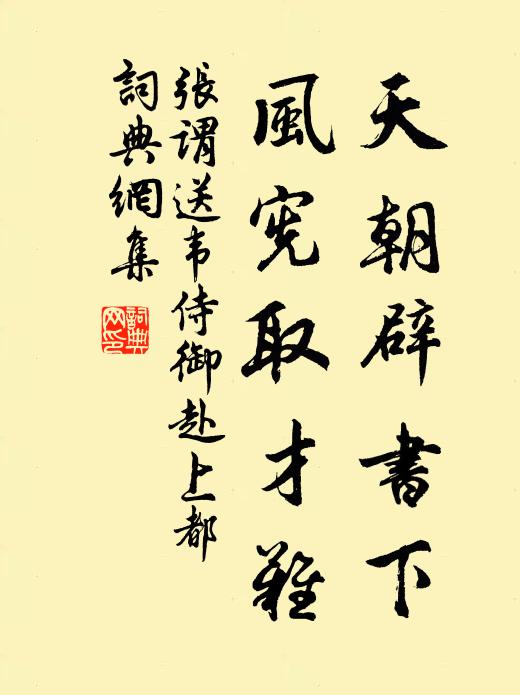 天朝辟書下
風宪取才難
張謂送韦侍御赴上都
詞典網集
詞典网印